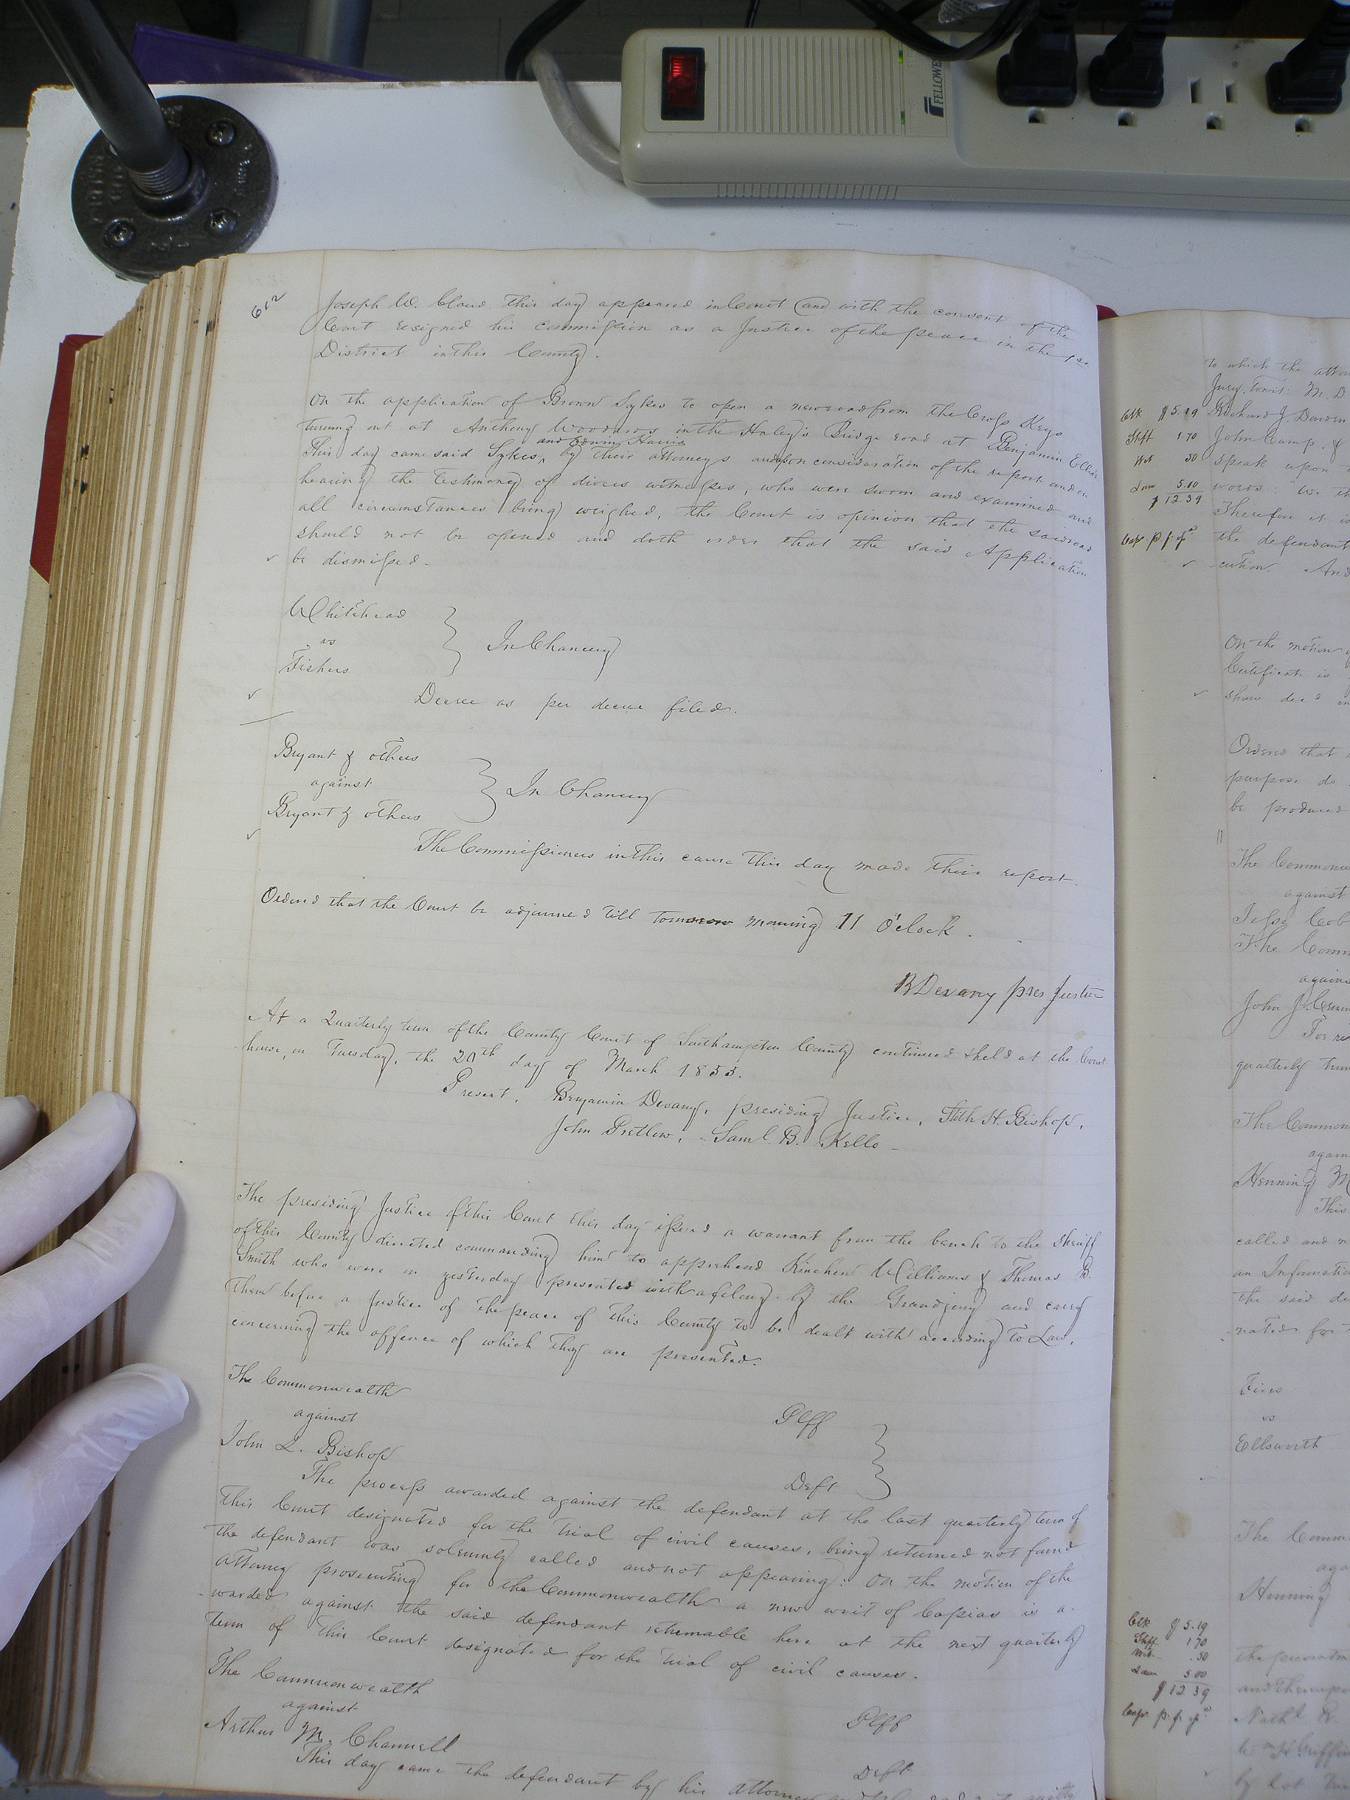 FELLOWES
612
Joseph W. Claud this day appeared in Court and with the consent of the
Court resigned his commission as a Justice of the peace in the 1st
District in this County.
On the application of Brown Sykes to open a new road from the Cross Keys
turning out at Anthony Woodsons in the Haley's Bridge road at Benjamin Ellis
and Edwin Harris
This day came said Sykes, by their attorneys and upon consideration of the report and on
hearing the testimony of divers witnesses, who were sworn and examined and
all circumstances being weighed, the Court is opinion that the said road
should not be opened and doth order that the said Application
be dismissed.
Whitehead
vs
Fishers
In Chancery
Decree as per decree filed.
Bryant & others
against
Bryant & others
In Chancery
The Commissioners in this cause this day made their report.
Ordered that the Court be adjourned till tomorrow morning 11 O'clock.
B Devany pres Justice
At a Quarterly term of the County Court of Southampton County continued & held at the Court
house, on Tuesday, the 20th day of March 1855.
Present, Benjamin Devany, presiding Justice, Seth H. Bishop,
John Pretlow, Saml. B. Kello
The presiding Justice of this Court this day issued a warrant from the bench to the Sheriff
of this County directed commanding him to apprehend Kinchen Williams & Thomas B
Smith who were on yesterday presented with a felony by the Grand jury and carry
them before a Justice of the peace of this County to be dealt with according to Law,
concerning the offence of which they are presented.
The Commonwealth
against
John L. Bishop
Plff
Deft
The process awarded against the defendant at the last quarterly term of
this Court designated for the trial of civil causes, being returned not found
the defendant was solemnly called and not appearing: On the motion of the
Attorney prosecuting for the Commonwealth a new writ of Capias is a-
warded against the said defendant returnable here at the next quarterly
term of this Court designated for the trial of civil causes.
The Commonwealth
against
Arthur M. Channell
Plff
Deft
This day came the defendant by his attorney
to which the
Jury, towit: M. D.
Richard J. Darden
John Camp
speak upon
words: We the
Therefore it is
the defendant
cution. And
Clk $5.19
Shff 1.70
Wit 50
Law 5.00
$12.39
On the motion
Certificate is
show
Ordered that
purpose do
be produced
The Commonwe
against
Jesse
The Comm
against
John J.
For
quarterly term
The Common
again
Henning M
This
called and
an Informatio
the said de
nated for
Fires
vs
Ellsworth
The Comm
aga
Henning
Clk $5.19
Shff. 1.70
Wit. .50
Law 5.00
$12.39
and thereupo
Nathl R.
Wm H Griffin
by lot